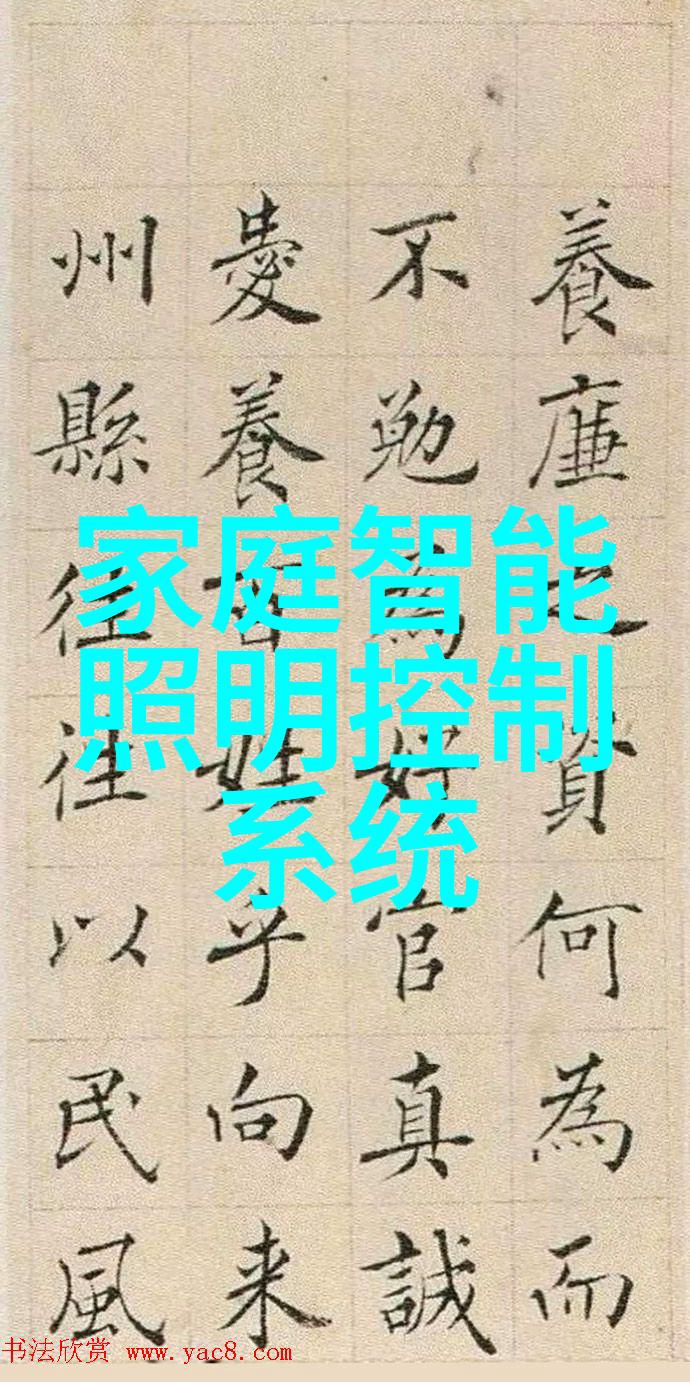 養廉之資何為而
不勉為好官真誠
愛養百姓乎向来
州縣往往以民風
家庭智能
照明控制
系统
书法欣赏 www.yac8.com